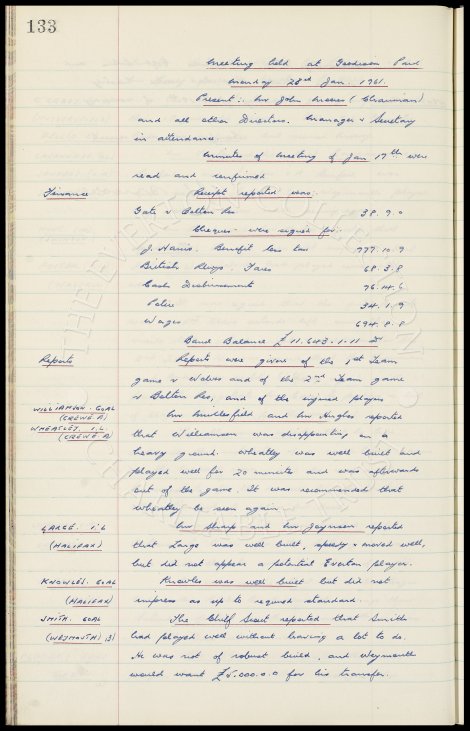 133
Meeting held at Goodison Park
Monday 23rd Jan. 1961.
Present: Mr John Moores (Chairman)
and all other Directors. Manager & Secretary
in attendance.
Minutes of Meeting of Jan 17th were
read and confirmed
Finance Receipt reported was:
Gate v Bolton Res 38.9.0
Cheques were signed for:
J. Harris. Benefit less tax 777.10.9
British Rlwys. Fares 68.3.8
Cash Disbursements 76.14.6
Police 34.1.9
Wages 694.8.8
Bank Balance £11.643.1.11 Dr
Reports Reports were given of the 1st Team
game v Wolves and of the 2nd Team game
v Bolton Res, and of the injured players
WILLIAMSON. GOAL Mr Micklesfield and Mr Hughes reported
(CREWE A)
WHEATLEY. I.L that Williamson was disappointing on a
(CREWE A) heavy ground. Wheatley was well built and
played well for 20 minutes and was afterwards
out of the game. It was recommended that
Wheatley be seen again
LARGE. I.L Mr Sharp and Mr Joynson reported
(HALIFAX) that Large was well built, speedy & moved well,
but did not appear a potential Everton player.
KNOWLES. GOAL Knowles was well built but did not
(HALIFAX) impress as up to required standard.
SMITH. GOAL The Chief Scout reported that Smith
(WEYMOUTH) had played well without having a lot to do.
He was not of robust build, and Weymouth
would want £5.000.0.0 for his transfer.
THE EVERTON COLLECTION